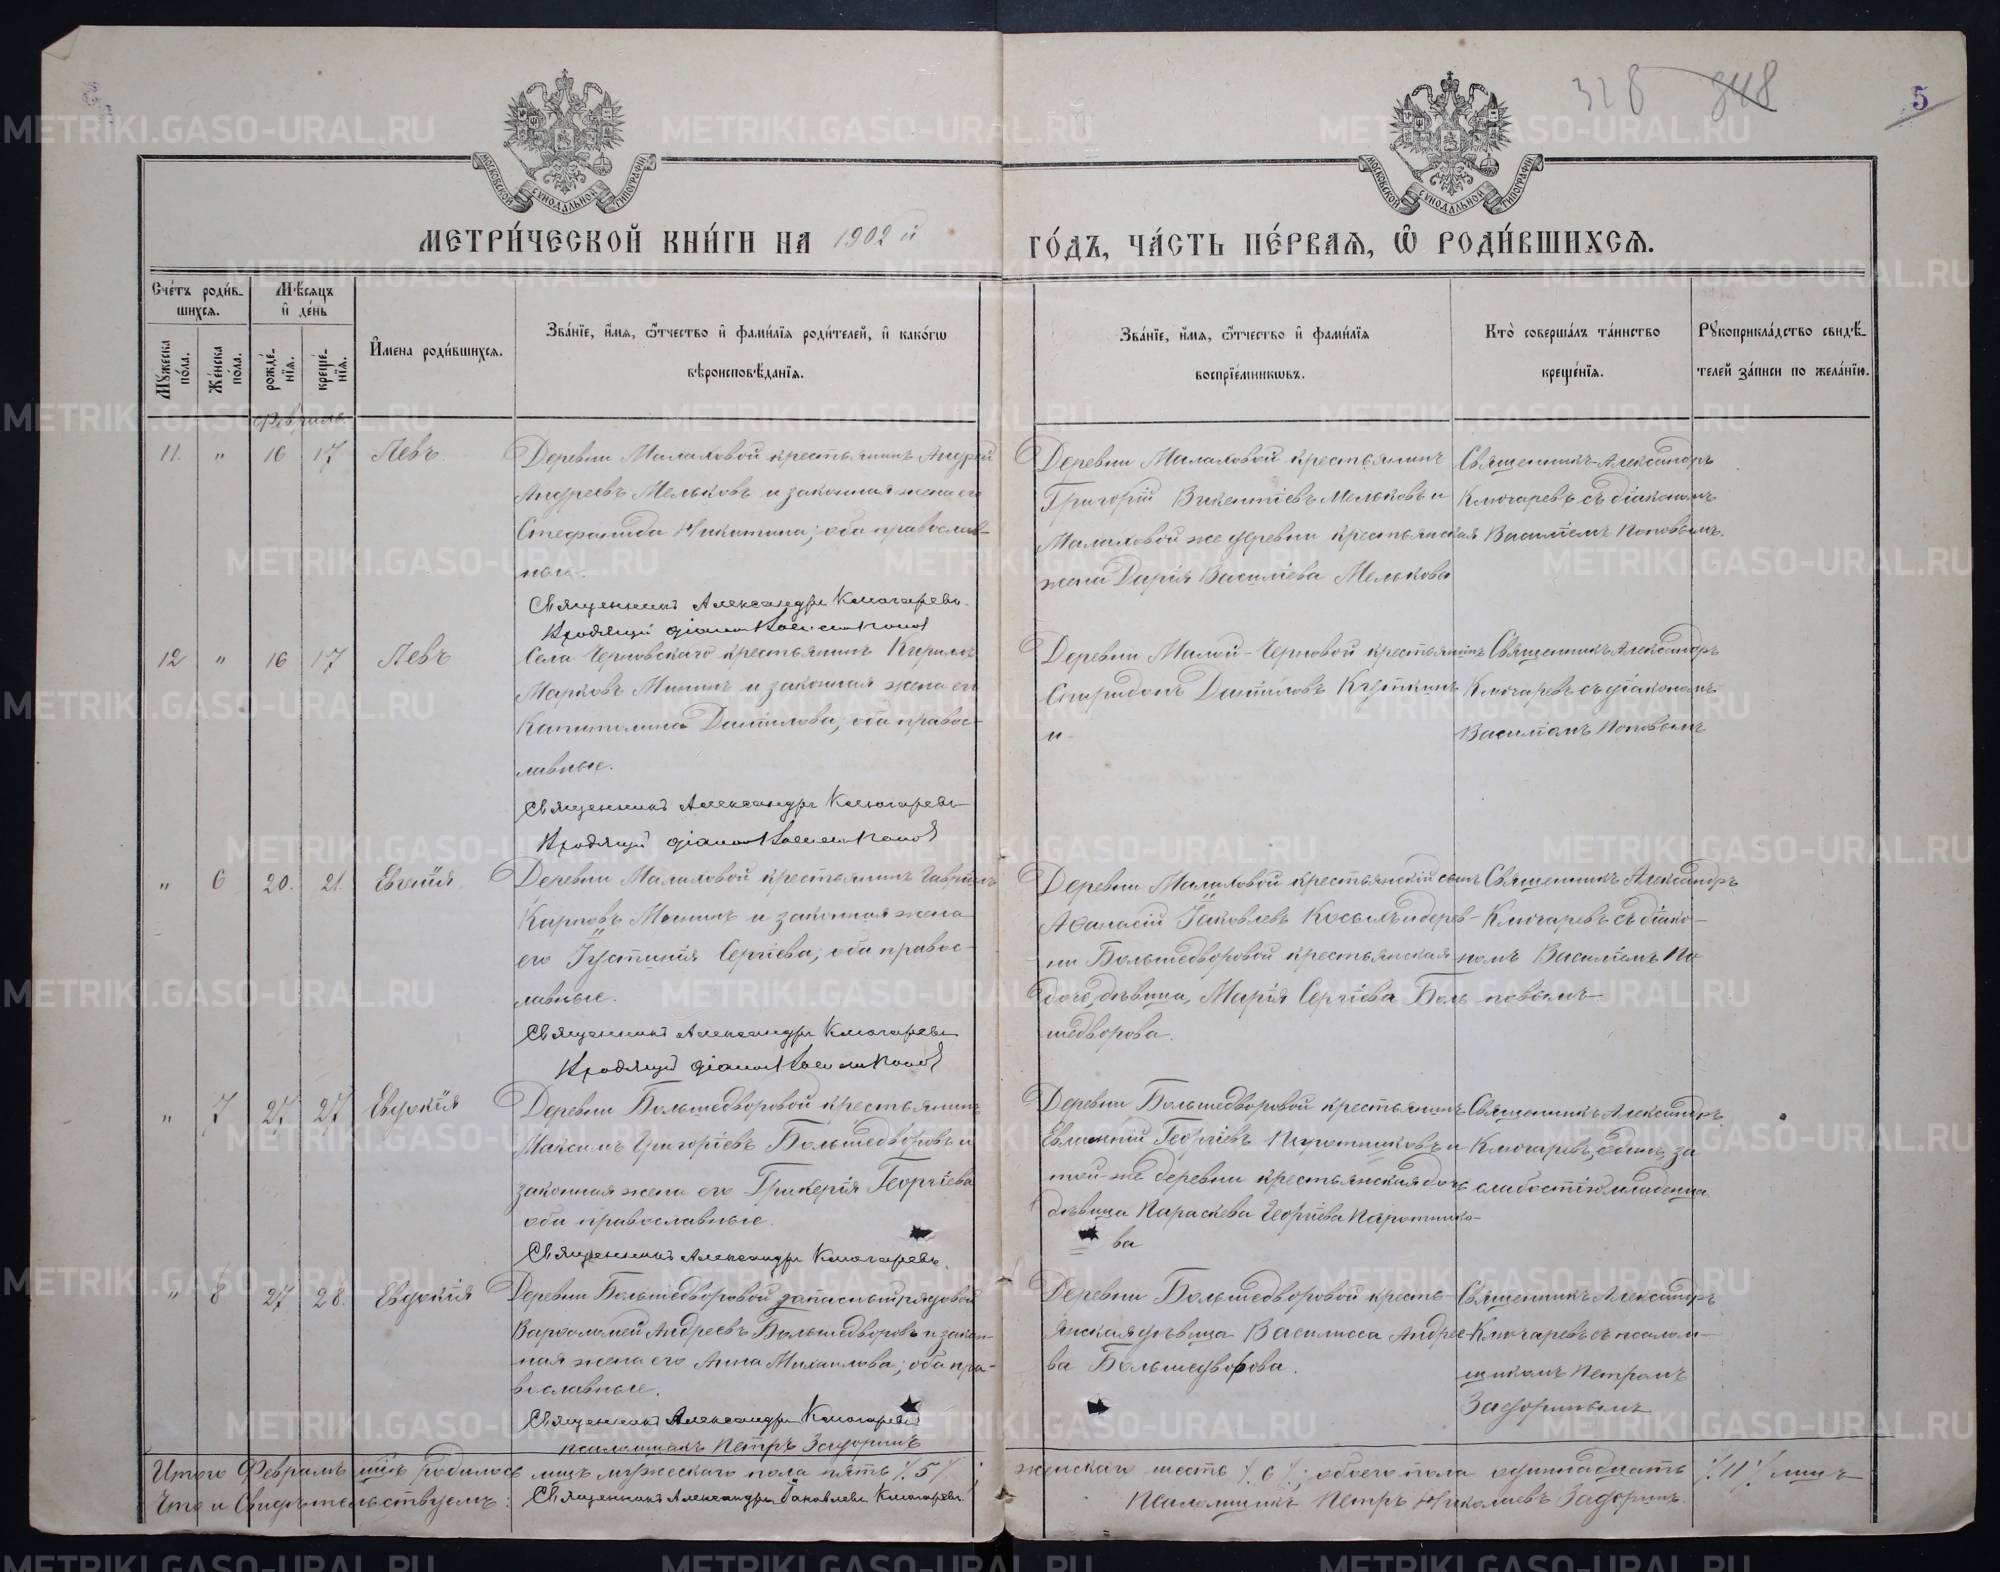 328 848
5
МОСКОВСКОЙ СѴНОДАЛЬНОЙ ТИПОГРАФІИ
МОСКОВСКОЙ СѴНОДАЛЬНОЙ ТИПОГРАФІИ
МЕТРИ́ЧЕСКОЙ КНИ́ГИ НА 1902 й
ГО́ДЪ, ЧА́СТЬ ПЕ́РВАЯ, Ѡ҆ РОДИ́ВШИХСЯ.
Счетъ роди́в-
шихся.
Мѣ́сяцъ
и҆ де́нь
Мꙋжеска по́ла.
Же́нска по́ла.
рожде́-
нїя.
креще́-
нїя.
И҆мена роди́вшихся.
Зва́нїе, и҆́мя, ѻ҆́тчество и҆ фами́лїя роди́телей, и҆ како́гѡ
вѣроисповѣ́данїя.
Зва́нїе, и҆́мя, ѻ҆́тчество и҆ фами́лїя
воспрїе́мникѡвъ.
Кто̀ соверша́лъ та́инство
креще́нїя.
Рꙋкоприкла́дство свидѣ́-
телей за́писи по жела́нїю.
Февраль
11. " 16 17 Левъ.
Деревни Малаховой крестьянинъ Андрей
Андреевъ Мельковъ и законная жена его
Стефанида Никитина; оба православ-
ные.
Священникъ Александръ Ключаревъ.
Деревни Малаховой крестьянинъ
Григорій Викентіевъ Мельковъ и
Малаховой же деревни крестьянская
жена Дарія Василіева Мелькова
Священникъ Александръ
Ключаревъ съ діакономъ
Василіемъ Поповымъ.
12 " 16 17 Левъ
Села Черновскаго крестьянинъ Кириллъ
Марковъ Мининъ и законная жена его
Капитолина Даніилова; оба правос-
лавные.
Священникъ Александръ Ключаревъ
Деревни Малой-Черновой крестьянинъ
Спиридонъ Даніиловъ
и
Священникъ Александръ
Ключаревъ съ діакономъ
Василіемъ Поповымъ
" 6 20. 21. Евгенія
Деревни Малаховой крестьянинъ Гавріилъ
Карповъ Мининъ и законная жена
его Іустинія Сергіева; оба правос-
лавные.
Священникъ Александръ Ключаревъ
Деревни Малаховой крестьянскій сынъ
Аѳанасій Іаковлевъ и дерев-
ни Большедворовой крестьянская
дочь, дѣвица, Марія Сергіева Боль
шедворова.
Священникъ Александръ
Ключаревъ съ діако-
номъ Василіемъ По
повымъ
" 7 27 27 Евдокія
Деревни Большедворовой крестьянинъ
Максимъ Григоріевъ Большедворовъ и
законная жена его Гликерія Георгіева
оба православные.
Священникъ Александръ Ключаревъ.
Деревни Большедворовой крестьянинъ
Георгіевъ и
той-же деревни крестьянская дочь
дѣвица Параскева Георгіева
ва
Священникъ Александръ
Ключаревъ, одинъ, за
слабостію младенца.
" 8 27 28. Евдокія
Деревни Большедворовой запасный рядовой
Варѳоломей Андреевъ Большедворовъ и закон-
ная жена его Анна Михаилова; оба пра-
вославные.
Священникъ Александръ Ключаревъ
псаломщикъ Петръ Задоринъ
Деревни Большедворовой кресть-
янская дѣвица Василисса Андрее-
ва Большедворова.
Священникъ Александръ
Ключаревъ съ псалом-
щикомъ Петромъ
Задоринымъ
Итого Февралѣ м-цѣ родилось лицъ мужескаго пола пять /5/; женскаго шесть /6/; обоего пола одиннадцать /11/ лицъ
Что и свидѣтельствуемъ: Священникъ Александръ Іаковлевъ Ключаревъ.
Псаломщикъ Петръ Николаевъ Задоринъ.
METRIKI.GASO-URAL.RU